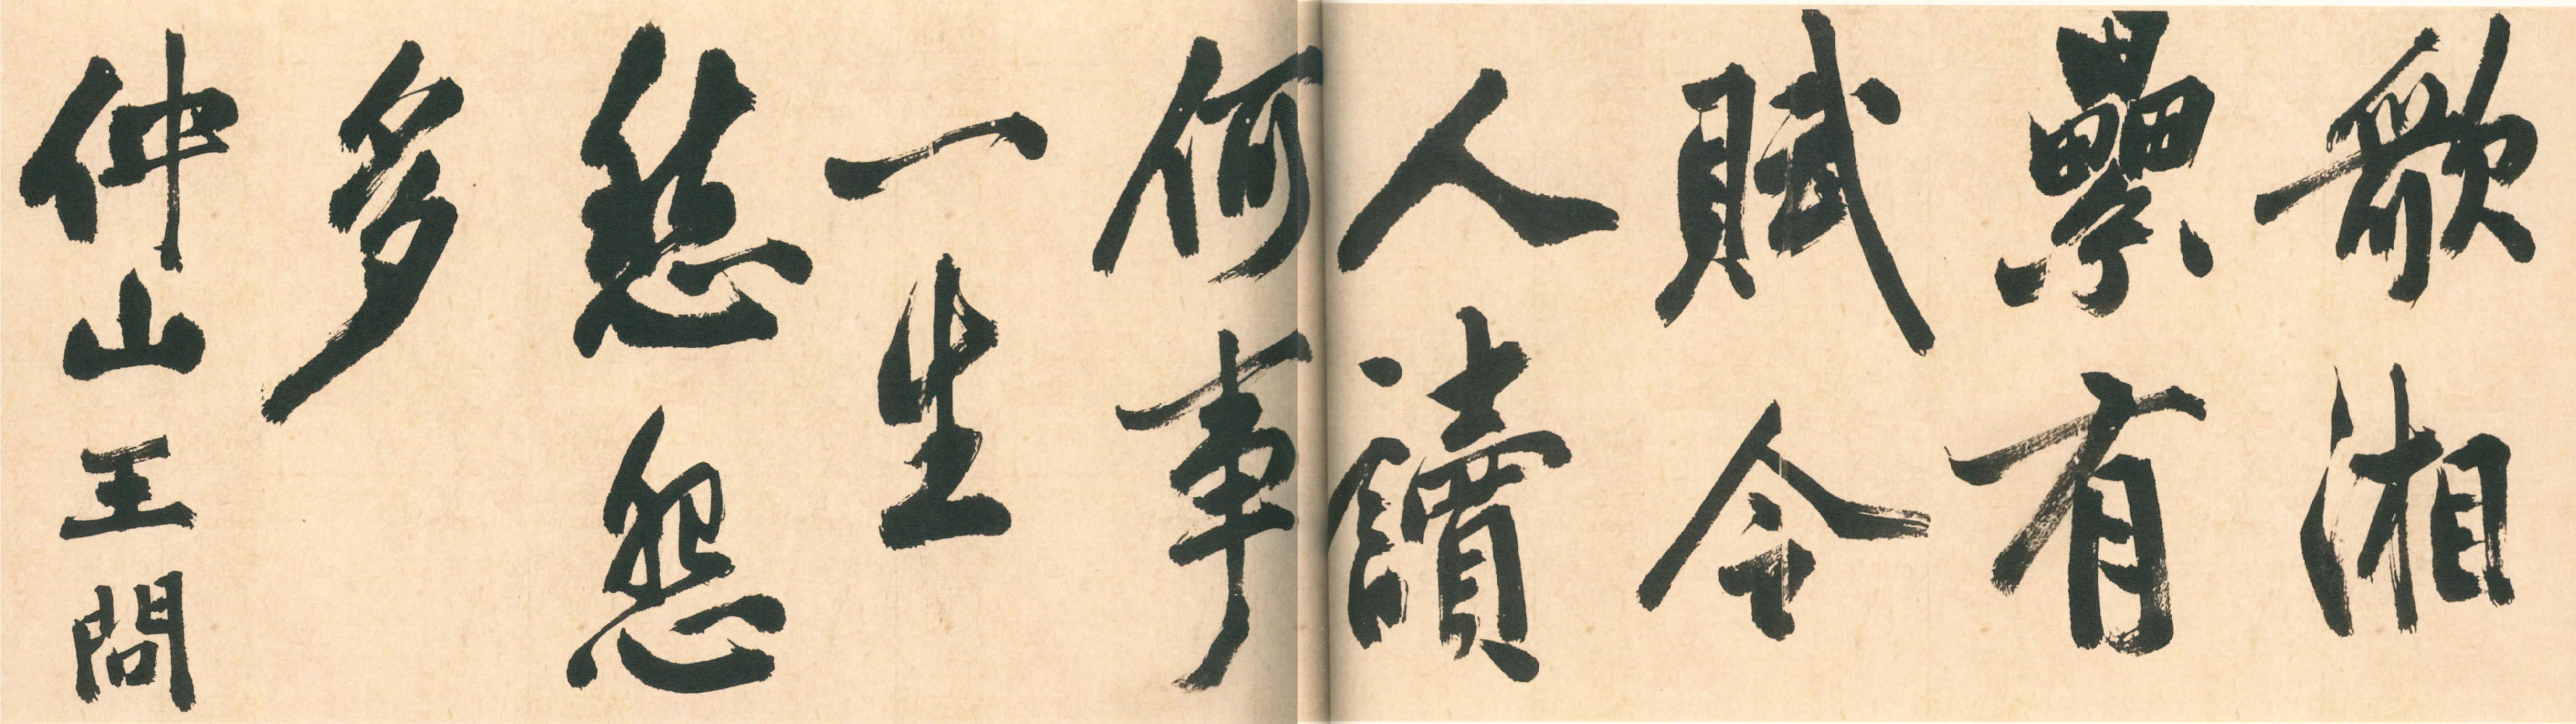 歌湘
纍有
賦令
人讀
何事
一生
愁怨
多
仲山王問